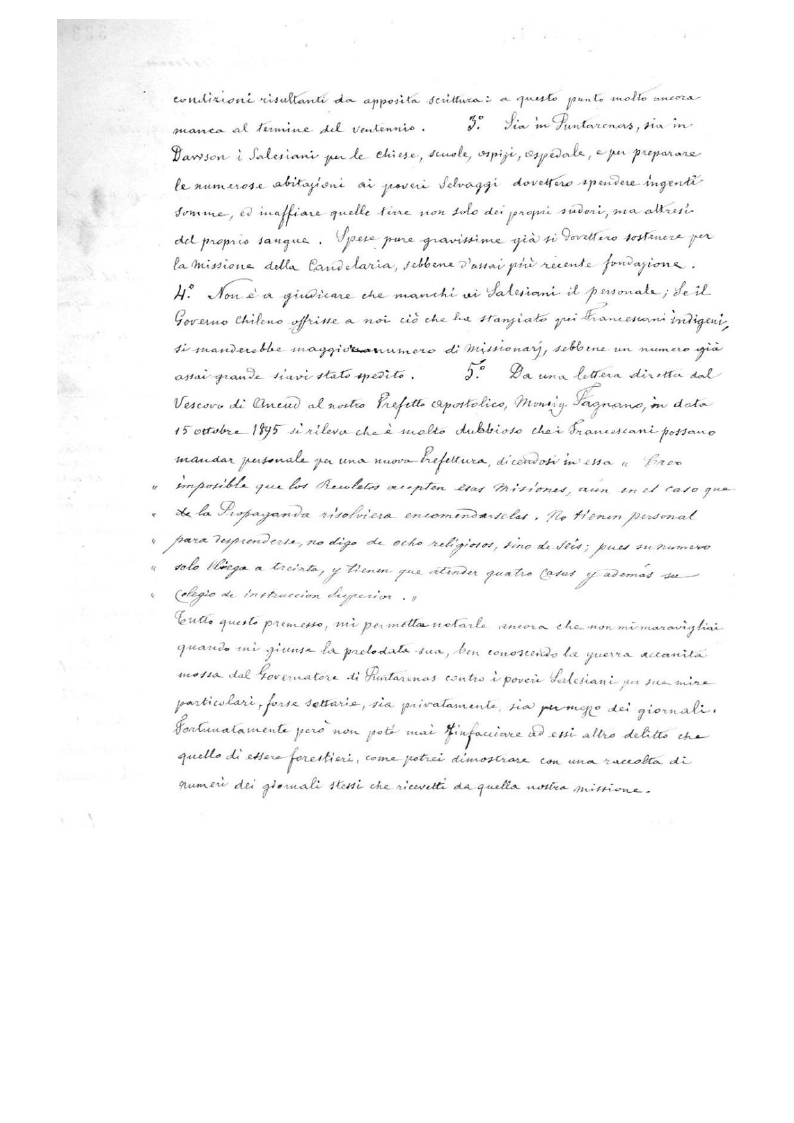 condizioni risultanti da apposita scrittura: a questo punto molto ancora
manca al termine del ventennio. 3º. Sia in Puntarenas, sia in
Dawson i Salesiani per le chiese, scuole, ospizi, ospedale, e per preparare
le numerose abitazioni ai poveri Selvaggi dovettero spendere ingenti
somme, ed inaffiare quelle terre non solo dei proprii sudori, ma altresì
del proprio sangue. Spese pure gravissime già si dovettero sostenere per
la missione della Candelaria, sebbene d'assai più recente fondazione.
4º. Non è a giudicare che manchi ai Salesiani il personale; Se il
Governo Chileno offrisse a noi ciò che ha stanziato pei Francescani indigeni,
si manderebbe maggior numero di Missionarj, sebbene un numero già
assai grande siavi stato spedito. 5º. Da una lettera diretta dal
Vescovo di Ancud al nostro Prefetto Apostolico, Monsig. Fagnano, in data
15 ottobre 1895 si rileva che è molto dubbioso che i Francescani possano
mandar personale per una nuova Prefettura, dicendosi in essa " Creo
" imposible que los Recoletos acepten esas Misiones, aun en el caso que
" de la Propaganda risolviera encomendarselas. No tienen personal
" para desprenderse, no digo de ocho religiosos, sino de séis; pues su numero
" solo llega a treinta, y tienen que atender quatro Casas y además su
" Colegio de instruccion Superior. "
Tutto questo premesso, mi permetta notarle ancora che non mi maravigliai
quando mi giunse la prelodata sua, ben conoscendo la guerra accanita
mossa dal Governatore di Puntarenas contro i poveri Salesiani per sue mire
particolari, forse settarie, sia privatamente, sia per mezzo dei giornali.
Fortunatamente però non poté mai rinfacciare ad essi altro delitto che
quello di essere forestieri, come potrei dimostrare con una raccolta di
numeri dei giornali stessi che ricevetti da quella nostra missione.